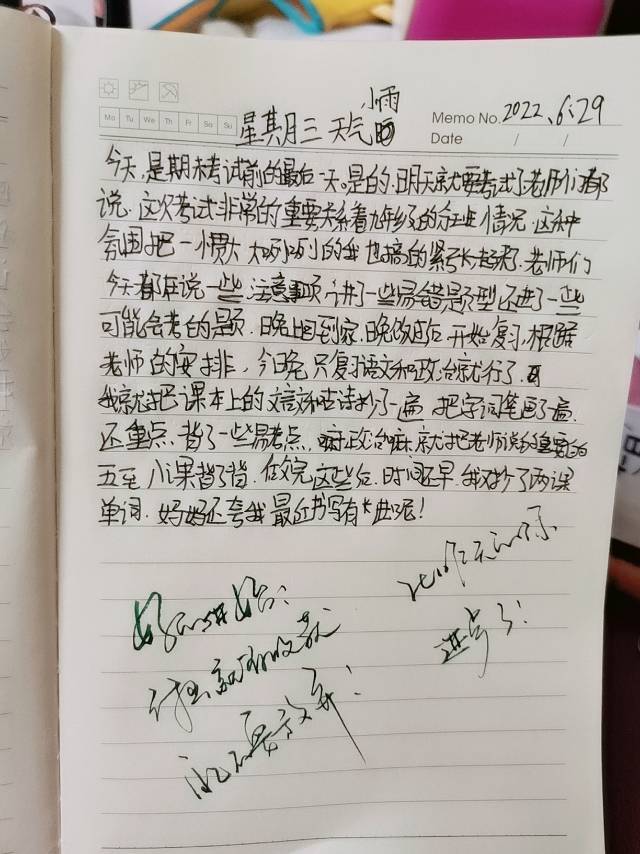 Mo Tu We Th Fr Sa Su
Memo No. 2022、6:29
Date / /
星期三 天气 小雨
今天,是期末考试前的最后一天。是的,明天就要考试了,老师们都
说,这次考试非常的重要关系着九年级的分班情况,这种
氛围把一惯大大咧咧的我也搞的紧张起来。老师们
今天都在说一些注意事项,讲了一些易错题型,还讲了一些
可能会考的题。晚上回到家,晚饭后,开始复习,根据
老师的安排,今晚只复习语文和政治就行了。
我就把课本上的文言文和古诗抄了一遍,把字词笔画了遍,
还重点,背了一些易考点,政治嘛,就把老师说的重要的
五至八课背了背。做完这些后,时间还早,我又抄了两课
单词。妈妈还夸我最近书写有长进呢!
好的开始:
付出就有收获
永不要放弃!
比昨天的你
进步了!